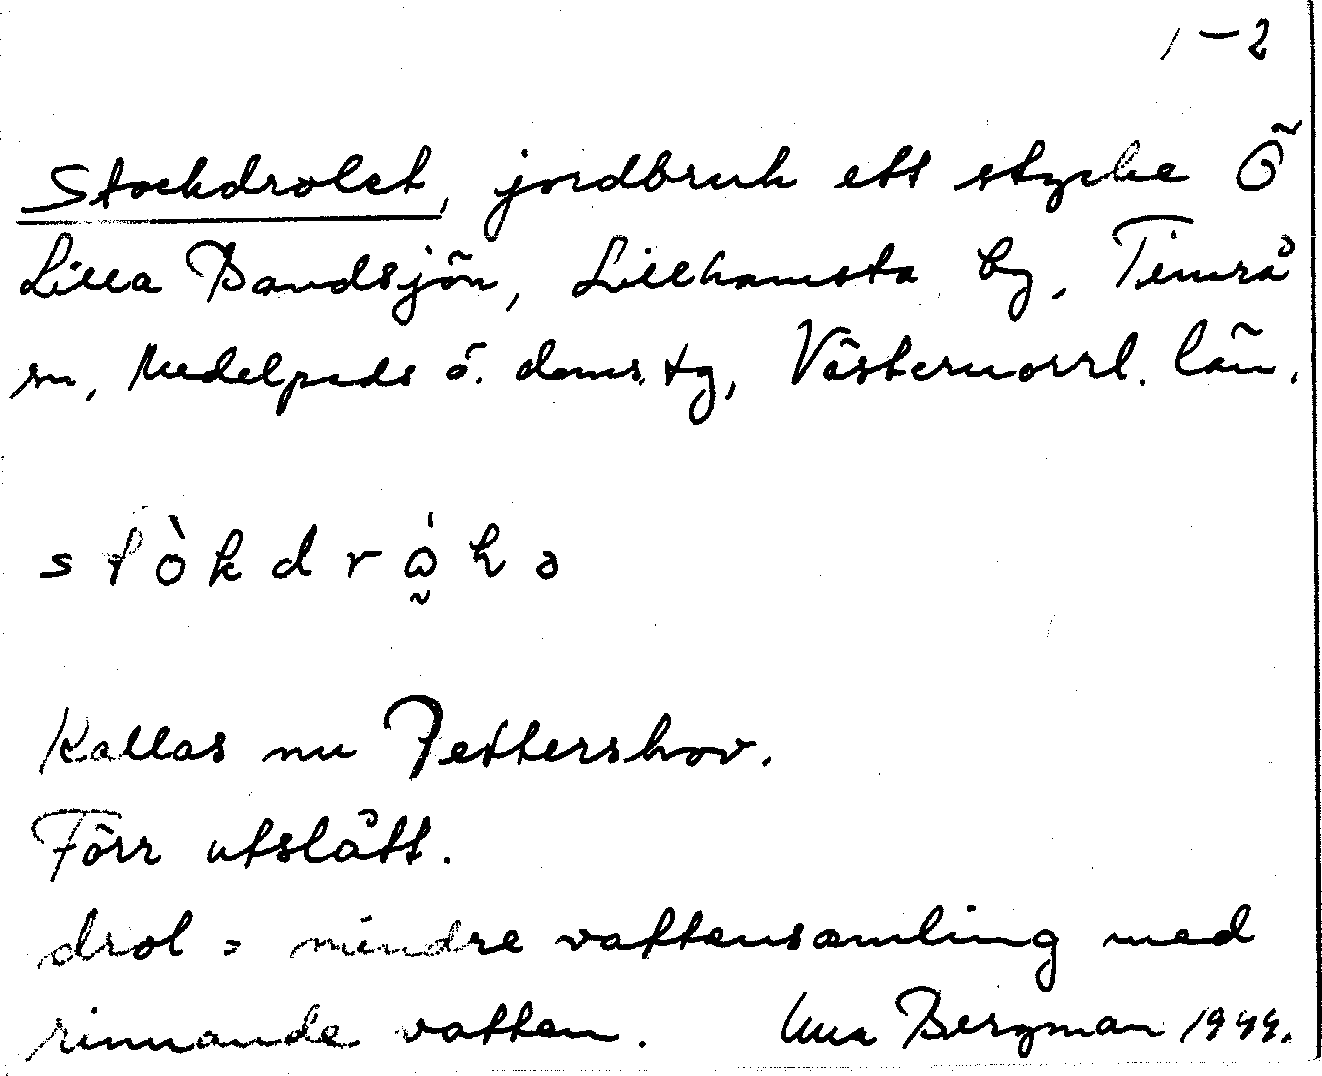 1–2
Stockdrolet, jordbruk ett stycke Ö
Lilla Bandsjön, Lillhamsta by, Timrå
sn, Medelpads ö. doms. tg, Västernorrl. län.
kallas nu Pettershov.
Förr utslått.
drol = mindre vattensamling med
rinnande vatten. Bergman 1944.